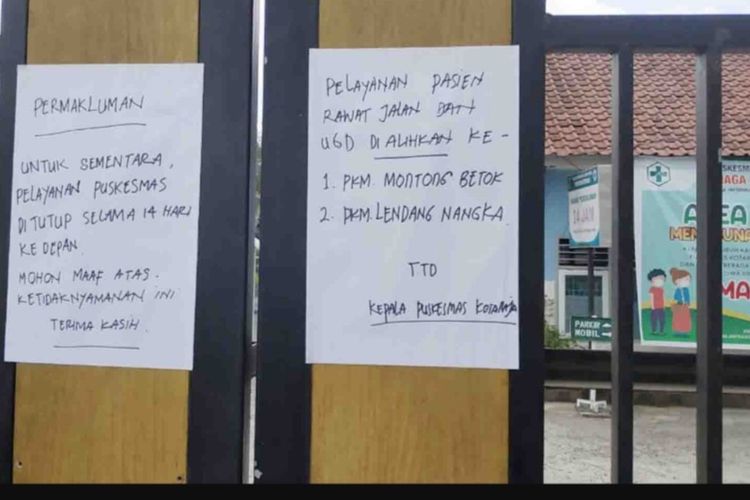 PERMAKLUMAN
UNTUK SEMENTARA,
PELAYANAN PUSKESMAS
DITUTUP SELAMA 14 HARI
KE DEPAN.
MOHON MAAF ATAS.
KETIDAKNYAMANAN INI
TERIMA KASIH.
PELAYANAN PASIEN
RAWAT JALAN DAN
UGD DIALIHKAN KE-
1. PKM. MONTONG BETOK
2. PKM. LENDANG NANGKA.
TTD
KEPALA PUSKESMAS KOTARAJA
14 JAM
PARKIR
MOBIL